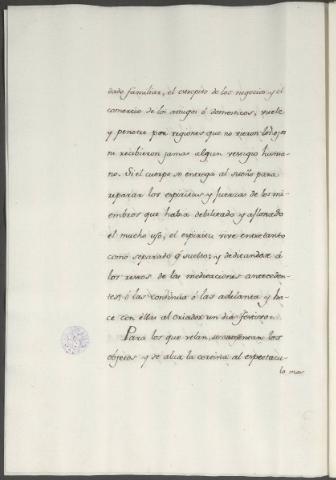 dado familiar, el estrepito de los negocios y el
comercio de los amigos ó domesticos, vuele
y penetre por regiones que no vieron los ojos
ni recibieron jamas algun vestigio huma-
no. Si el cuerpo se entrega al sueño para
reparar los espiritus y fuerzas de los mi-
embros que habia debilitado y aflojado
el mucho uso, el espiritu vive entretanto
como separado ó suelto; y dedicandose á
los restos de las meditaciones anteceden-
tes, ó las continúa ó las adelanta y ha-
ce con ellas al criador un dia festivo.
Para los que velan, se los
objetos y se alza la cortina al espectacu-
lo mas